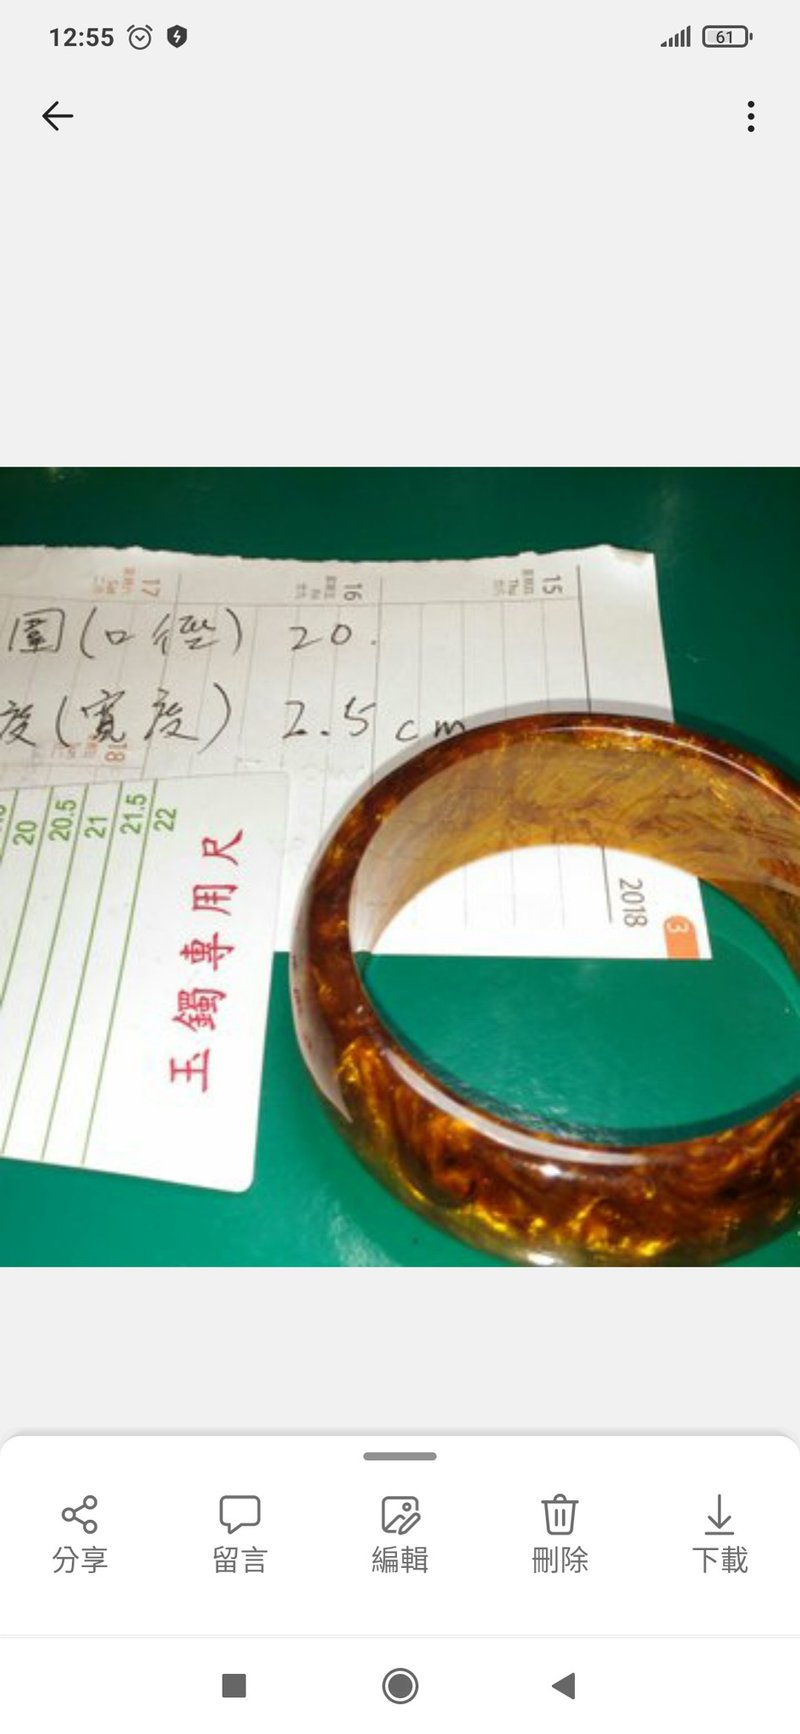 12:55
61
17
Sat
16
Fri
15
Thu
圍(口徑) 20.
度(寬度) 2.5 cm
18
20
20.5
21
21.5
22
玉鐲專用尺
2018
3
分享
留言
編輯
刪除
下載